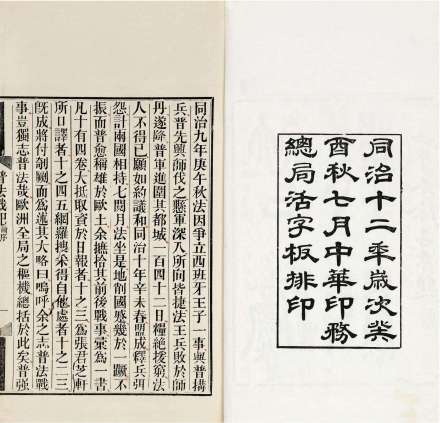 同治十二年歲次癸
酉秋七月中華印務
總局活字板排印
同治九年庚午秋法因爭立西班牙王子一事與普搆
兵普先興師伐之懸軍深入所向皆捷法王兵敗於師
丹遂降普軍進圍其都城一百四十二日糧絕援窮法
人不得已一願如約議和同治十年辛未春盟成釋兵弭
怨計兩國相持七閱月法坐是地削國蹙幾於一蹶不
振而普愈稱雄於歐土余摭拾其前後戰事彙爲一書
凡十有四卷大抵取資於日報者十之三爲張君芝軒
所口譯者十之四五網羅搜採得自他處者十之二三
旣成將付剞劂而爲述其大略曰嗚呼余之志普法戰
事豈獨志普法哉歐洲全局之樞機總括於此矣普強
普法戰紀